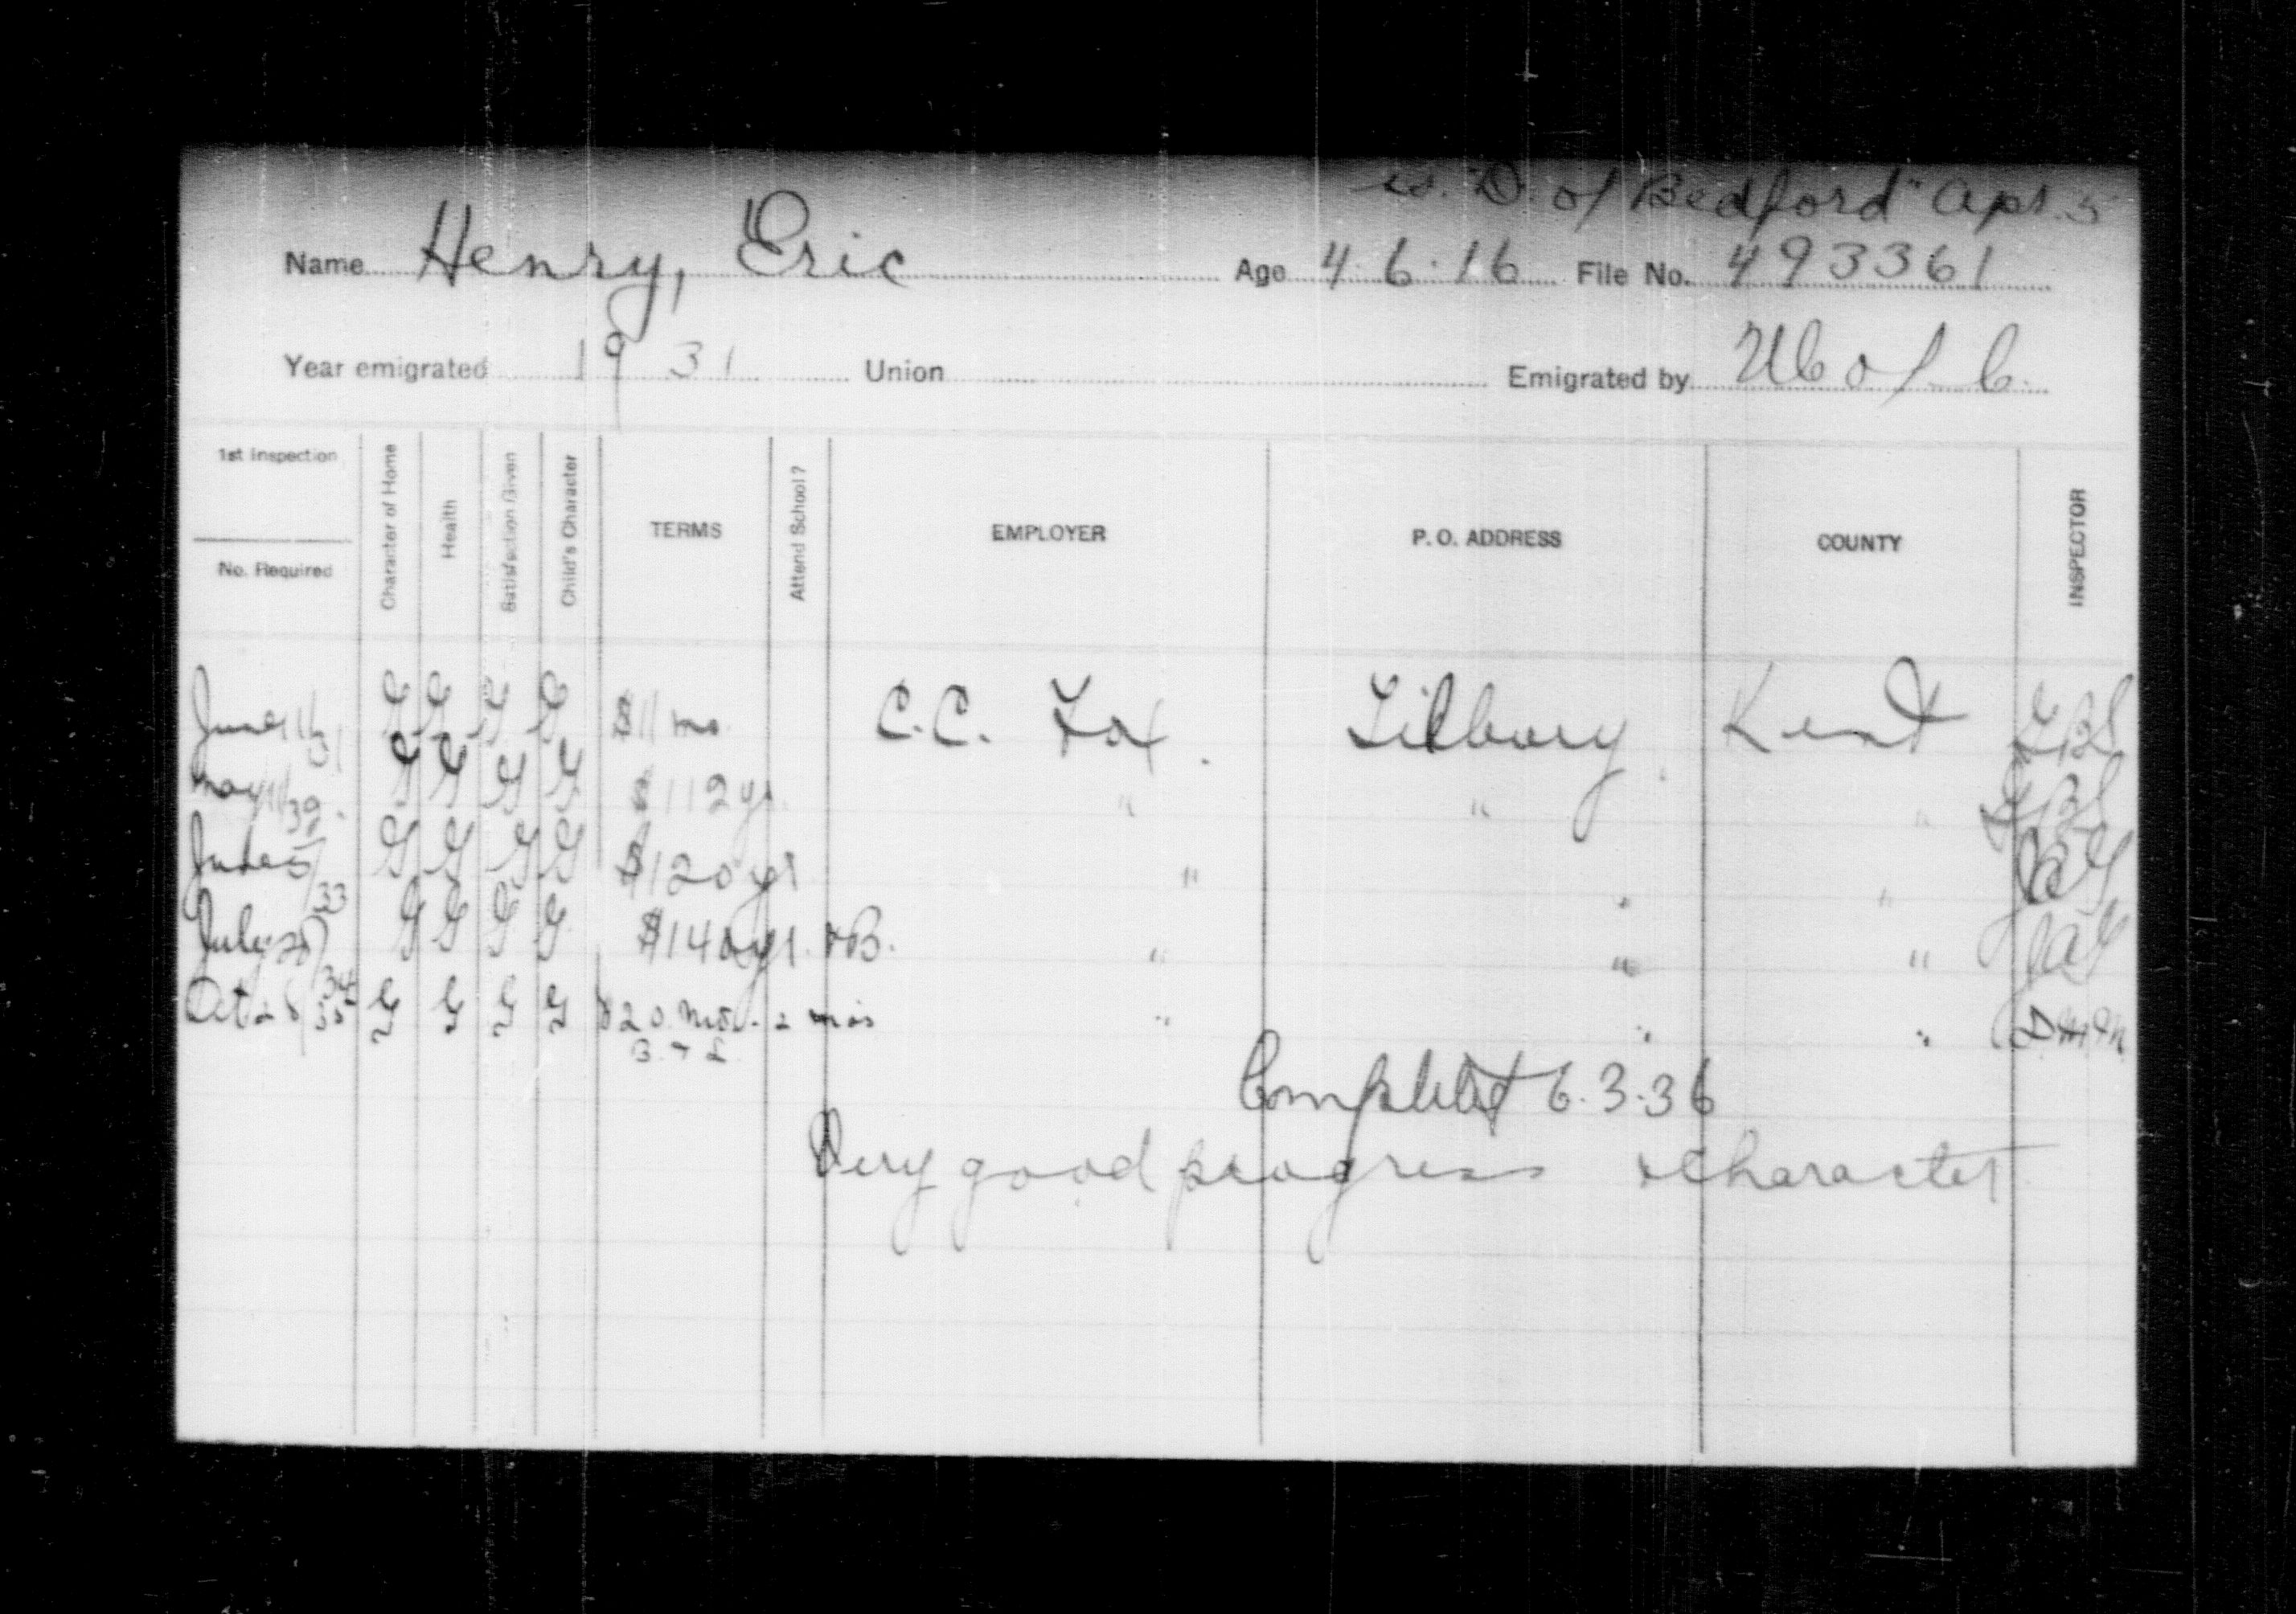 "D. of Bedford" Apr. 5
Name Henry, Eric Age 4.6.16 File No. 493361
Year emigrated 1931 Union Emigrated by U C of C.
1st Inspection
No. Required
Character of Home
Health
Satisfaction Given
Child's Character
TERMS
Attend School?
EMPLOYER
P. O. ADDRESS
COUNTY
INSPECTOR
June 11/31 G G G G $11 mo. C.C. Fox. Tilbury Kent
May 11/32. G G G G $112 yr " " "
June 5/33 G G G G $120 yr " " "
July 25/34 G G G G $140 yr. & B. " " "
Oct 28/35 G G G G $20 mo. - 2 mos " " "
B. & L
Completed 6.3.36
Very good progress & character